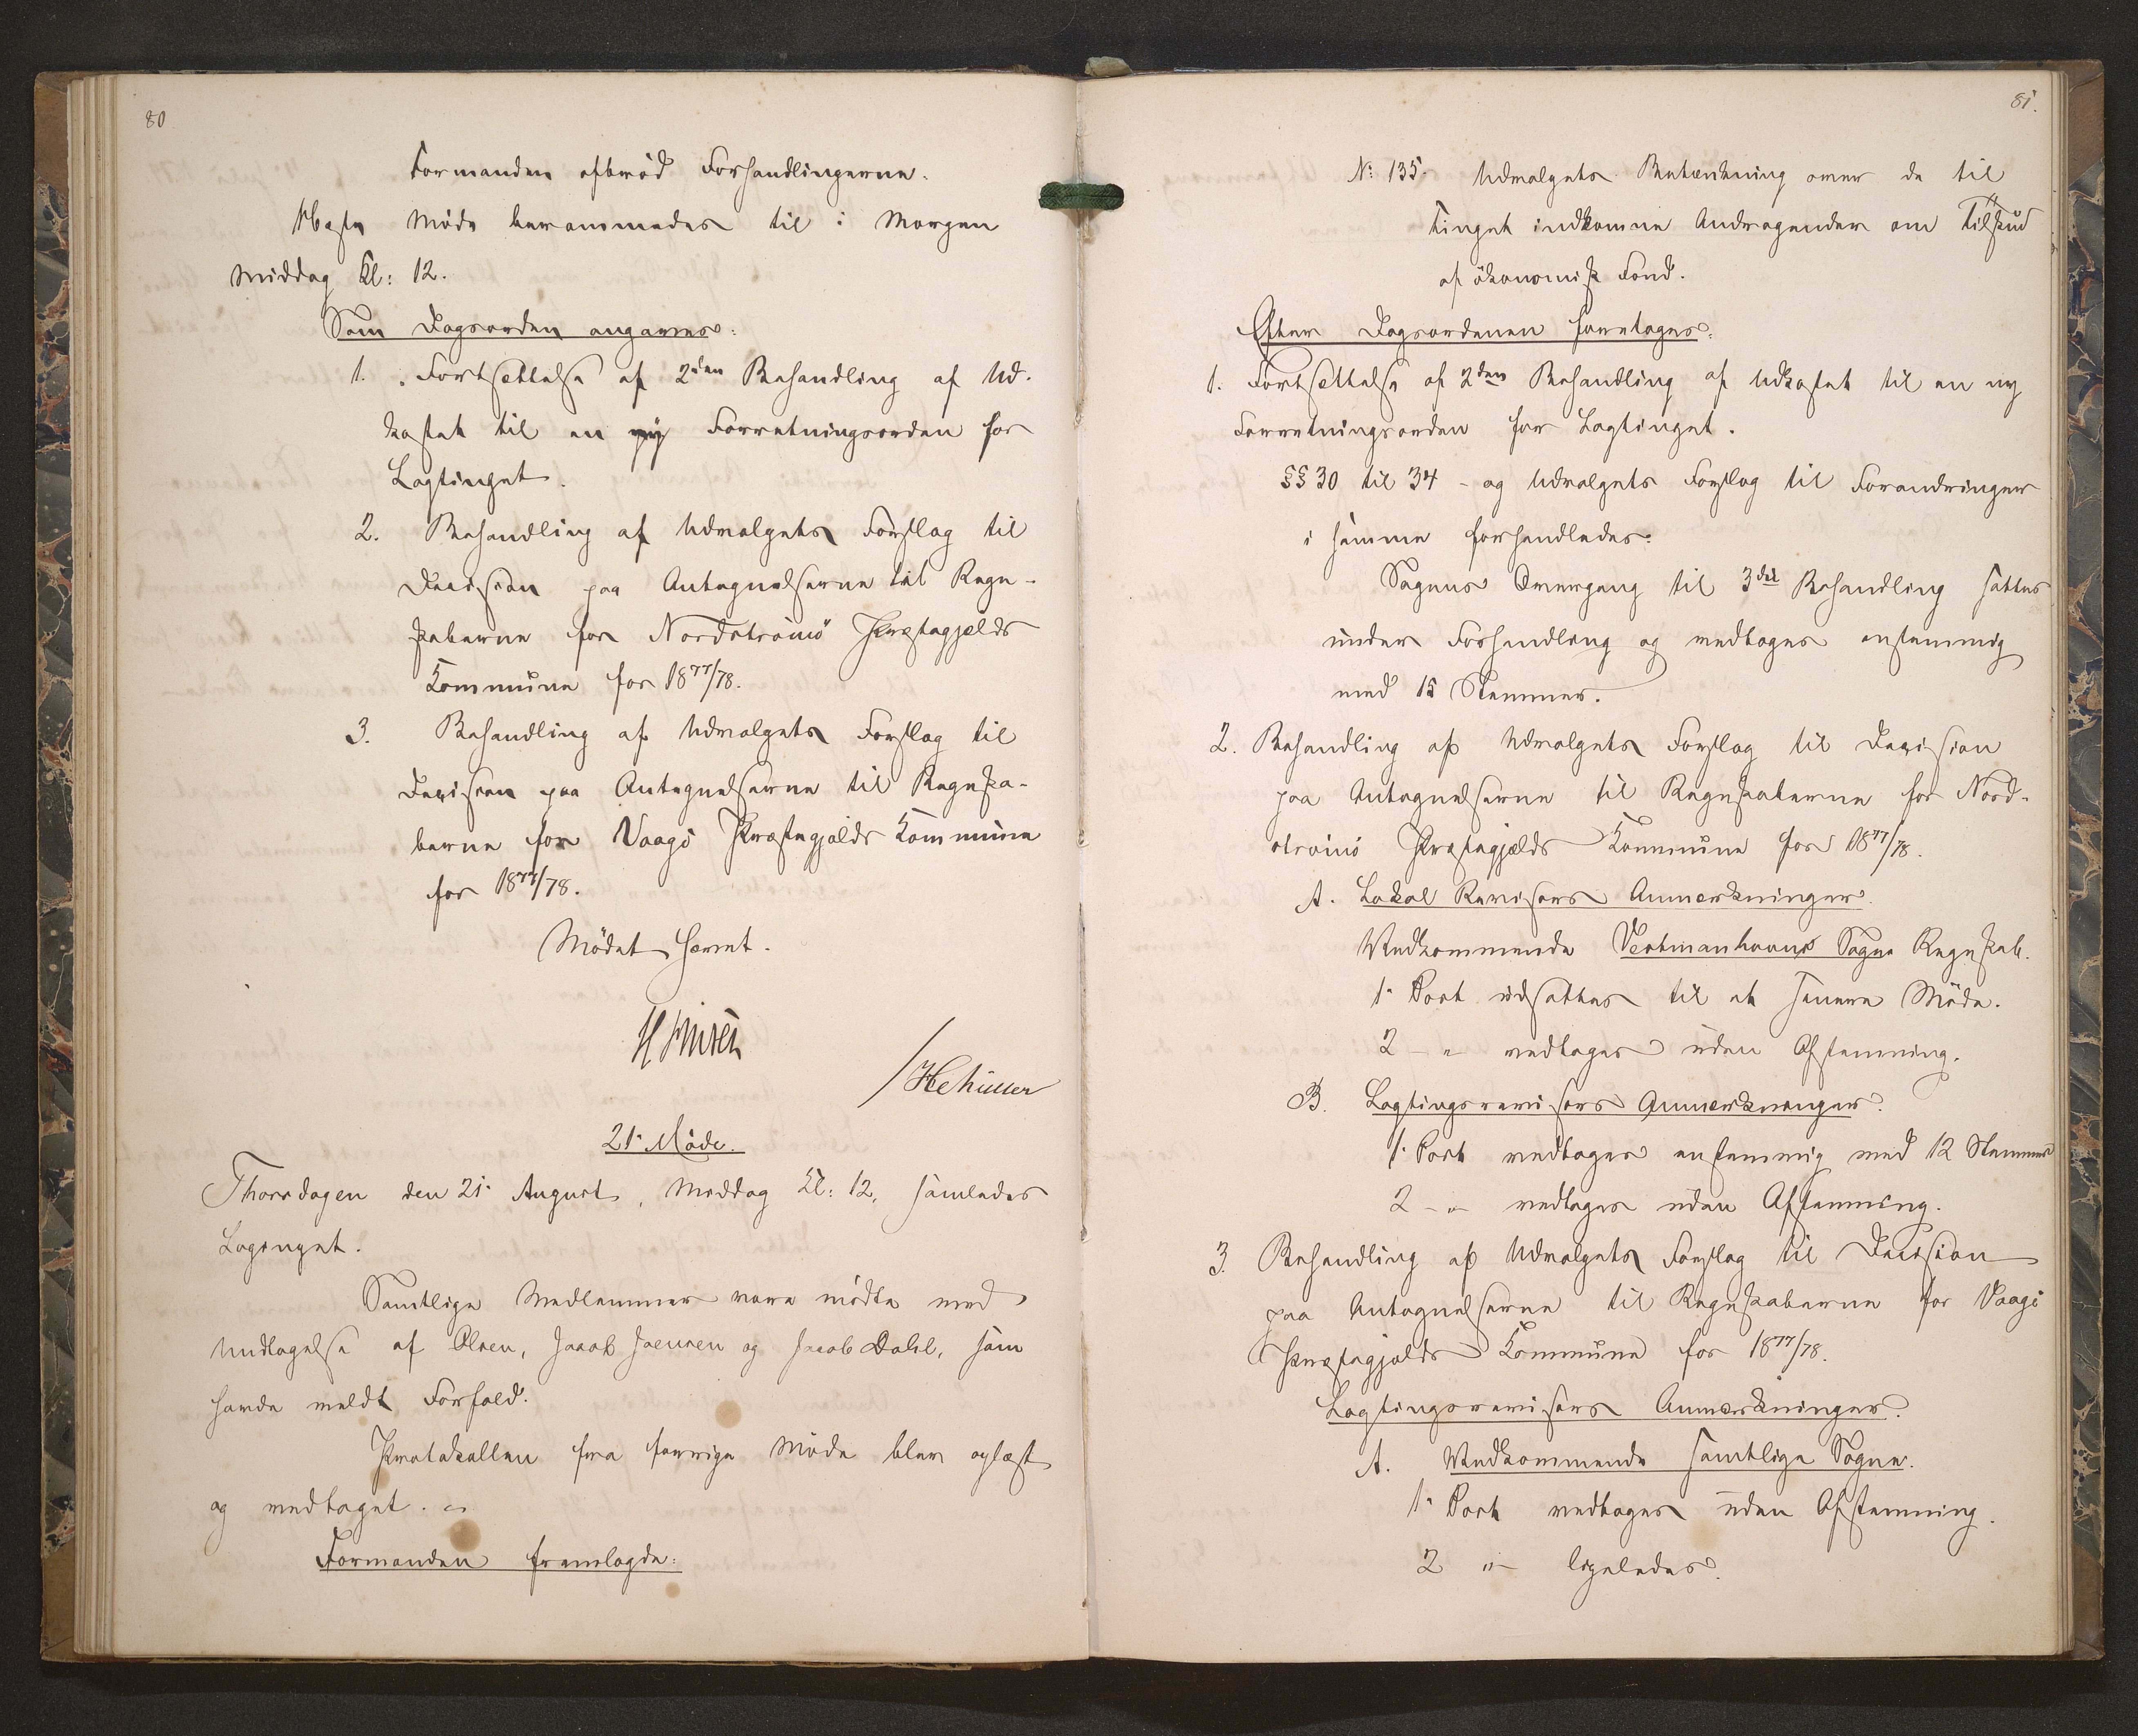 80
Formanden afbrød Forhandlingerne.
Næste Møde berammedes til i Morgen
Middag Kl: 12.
Som Dagsorden angaves:
1. Fortsættelse af 2den Behandling af Ud-
kastet til en ny Forretningsorden for
Lagtinget.
2. Behandling af Udvalgets Forslag til
Decision paa Antegnelserne til Regn-
skaberne for Nordstrømø Præstegjælds
Kommune for 1877/78.
3. Behandling af Udvalgets Forslag til
Decision paa Antegnelserne til Regnska-
berne for Vaagø Præstegjælds Kommune
for 1877/78.
Mødet hævet.
H Finsen
/HCMüller
21. Møde.
Thorsdagen den 21. August, Middag Kl: 12, samledes
Lagtinget.
Samtlige Medlemmer vare mødte med
Undtagelse af Olsen, Jacob Joensen og Jacob Dahl, som
havde meldt Forfald.
Protokollen fra forrige Møde blev oplæst
og vedtaget.
Formanden fremlagde:
81.
No 135. Udvalgets Betænkning over de til
Tinget indkomne Andragender om Tilskud
af økonomisk Fond.
Efter Dagsordenen foretoges:
1. Fortsættelse af 2den Behandling af Udkastet til en ny
Forretningsorden for Lagtinget.
§§ 30 til 34 - og Udvalgets Forslag til Forandringer
i samme forhandledes.
Sagens Overgang til 3die Behandling sattes
under Forhandling og vedtoges enstemmig
med 15 Stemmer.
2. Behandling af Udvalgets Forslag til Decision
paa Antegnelserne til Regnskaberne for Nord-
strømø Præstegjælds Kommune for 1877/78.
A. Lokal Revisors Anmærkninger.
Vedkommende Vestmanhavns Sogns Regnskab.
1. Post udsattes til et senere Møde.
2 - " - vedtoges uden Afstemning.
B. Lagtingsrevisors Anmærkninger.
1. Post vedtoges enstemmig med 12 Stemmer
2 - " - vedtoges uden Afstemning.
3. Behandling af Udvalgets Forslag til Decision
paa Antegnelserne til Regnskaberne for Vaagø
Præstegjælds Kommune for 1877/78.
Lagtingsrevisors Anmærkninger.
A. Vedkommende samtlige Sogne.
1. Post vedtoges uden Afstemning.
2 " - ligeledes.